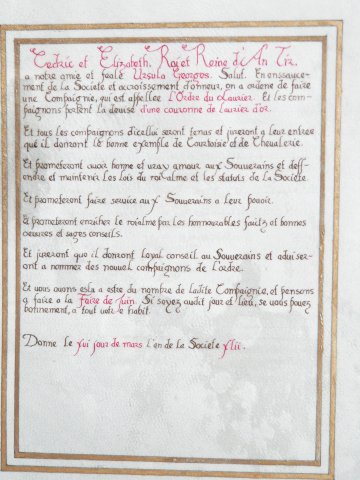 Cedric et Elizabeth, Roi et Reine d'An Tir,
a notre amie et feale Ursula Georges. Salut. En enssauce-
ment de la Societe et accroissement d'onneur, on a ordene de faire
une Compaignie, qui est apellee L'Ordre du Laurier. Et les com-
paignons portent la devise d'une couronne de laurier d'or.
Et tous les compaignons d'icellui seront tenus et jureront a leur entree
que il donront le bonne exemple de Courtoisie et de Chevalerie.
Et prometeront avoir bonne et vray amour aux Souverains et deff-
endre, et maintenir les lois du roialme et les statuts de la Societe.
Et prometeront faire service aux Souverains a leur povoir.
Et prometeront enricher le roialme par les honnourables faultz et bonnes
oeuvres et sages conseils.
Et jureront que il donront loyal conseil au Souverains et adviser-
ont a nommer des nouvel compaignons de l'ordre.
Et vous avons esla a estre du nombre de ladite Compaignie, et pensons
a faire a la faire de Juin. Si soyez audit jour et lieu, se vous povez
bonnement, a tout vetr le habit.
Donne le xvi jour de mars l'en de la Societe xlii.